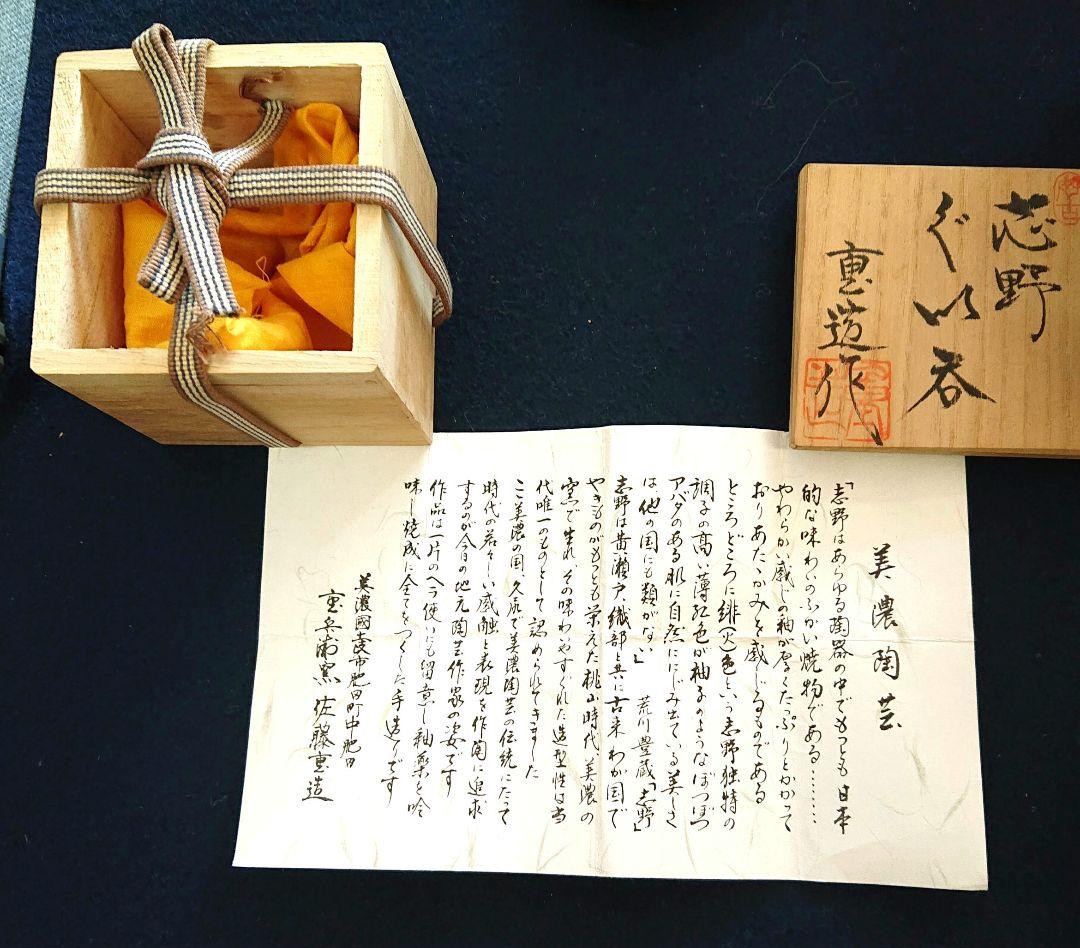 志野
ぐい呑
重造作
美濃陶芸
「志野はあらゆる陶器の中でもっとも日本
的な味わいのふかい焼物である……
やわらかい感じの釉が厚くたっぷりとかかって
おりあたゝかみを感じるものである
ところどころに緋(火)色という志野独特の
調子の高い薄紅色が柚子のようなぼつぼつ
アバタのある肌に自然ににじみ出ている美しさ
は、他の国にも類がない」 荒川豊蔵「志野」
志野は黄瀬戸、織部と共に古来わが国で
やきものがもっとも栄えた桃山時代、美濃の
窯で生れ、その味わいやすぐれた造型性は当
代唯一のものとして認められてきました
こゝ美濃の国、久尻で美濃陶芸の伝統にたって
時代の若々しい感触と表現を作陶に追求
するのが今日の地元陶芸作家の姿です
作品は一片のヘラ使いにも留意し釉薬を吟
味し焼成に全てをつくした手造りです
美濃國土岐市肥田町中肥田
重兵衛窯 佐藤重造